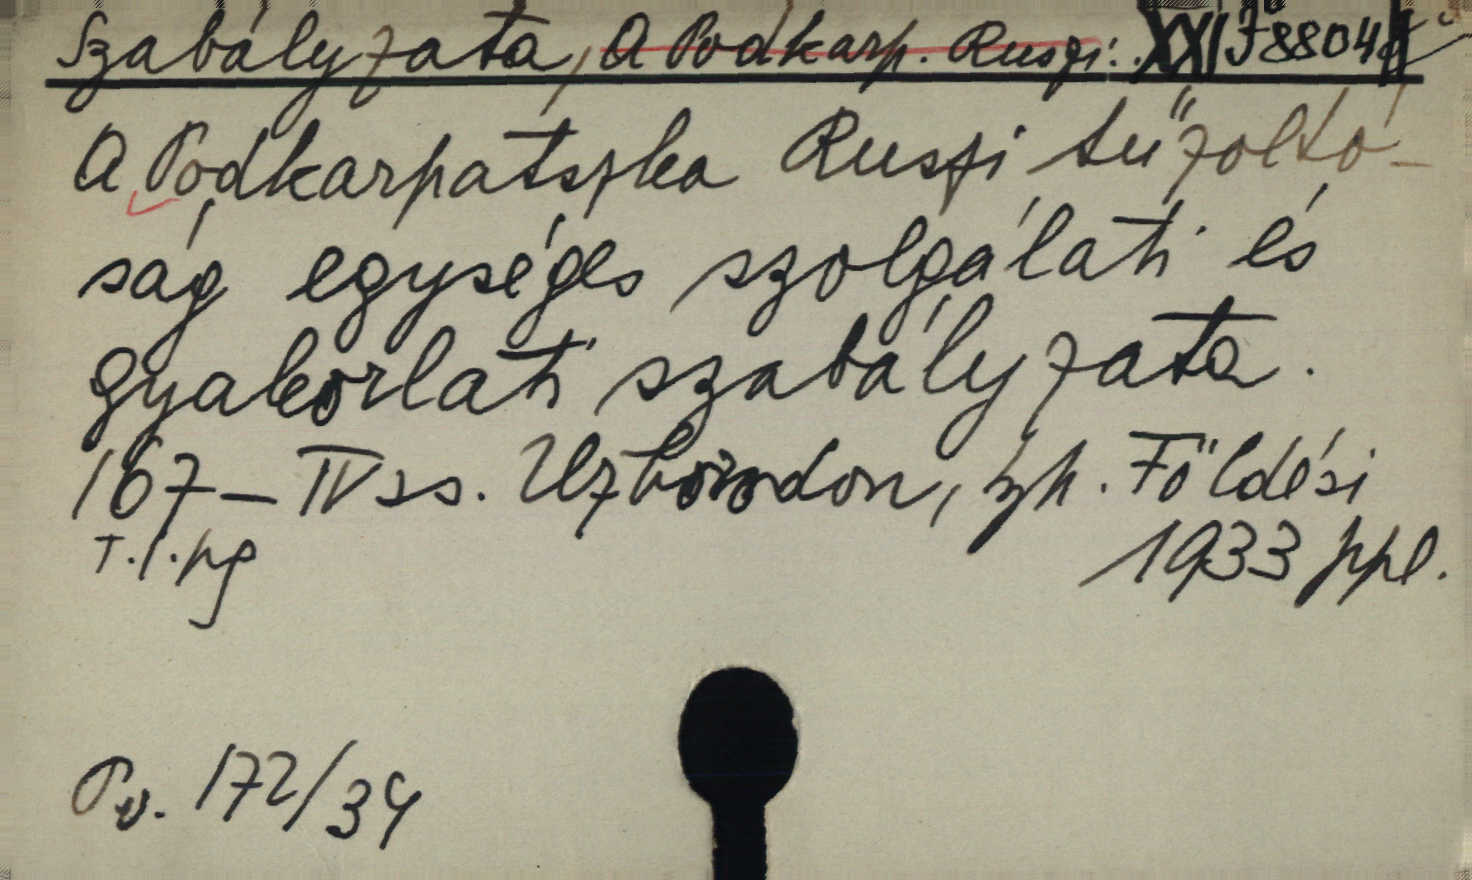 Szabályzata, A Podkarp. Ruszi: XXI J 8804
A Podkarpatszka Ruszi tűzoltó-
ság egységes szolgálati és
gyakorlati szabályzata.
167 – IV ss. Uzhorodon,  Földési
T. I. 1933 ppl.
Pv. 172/34